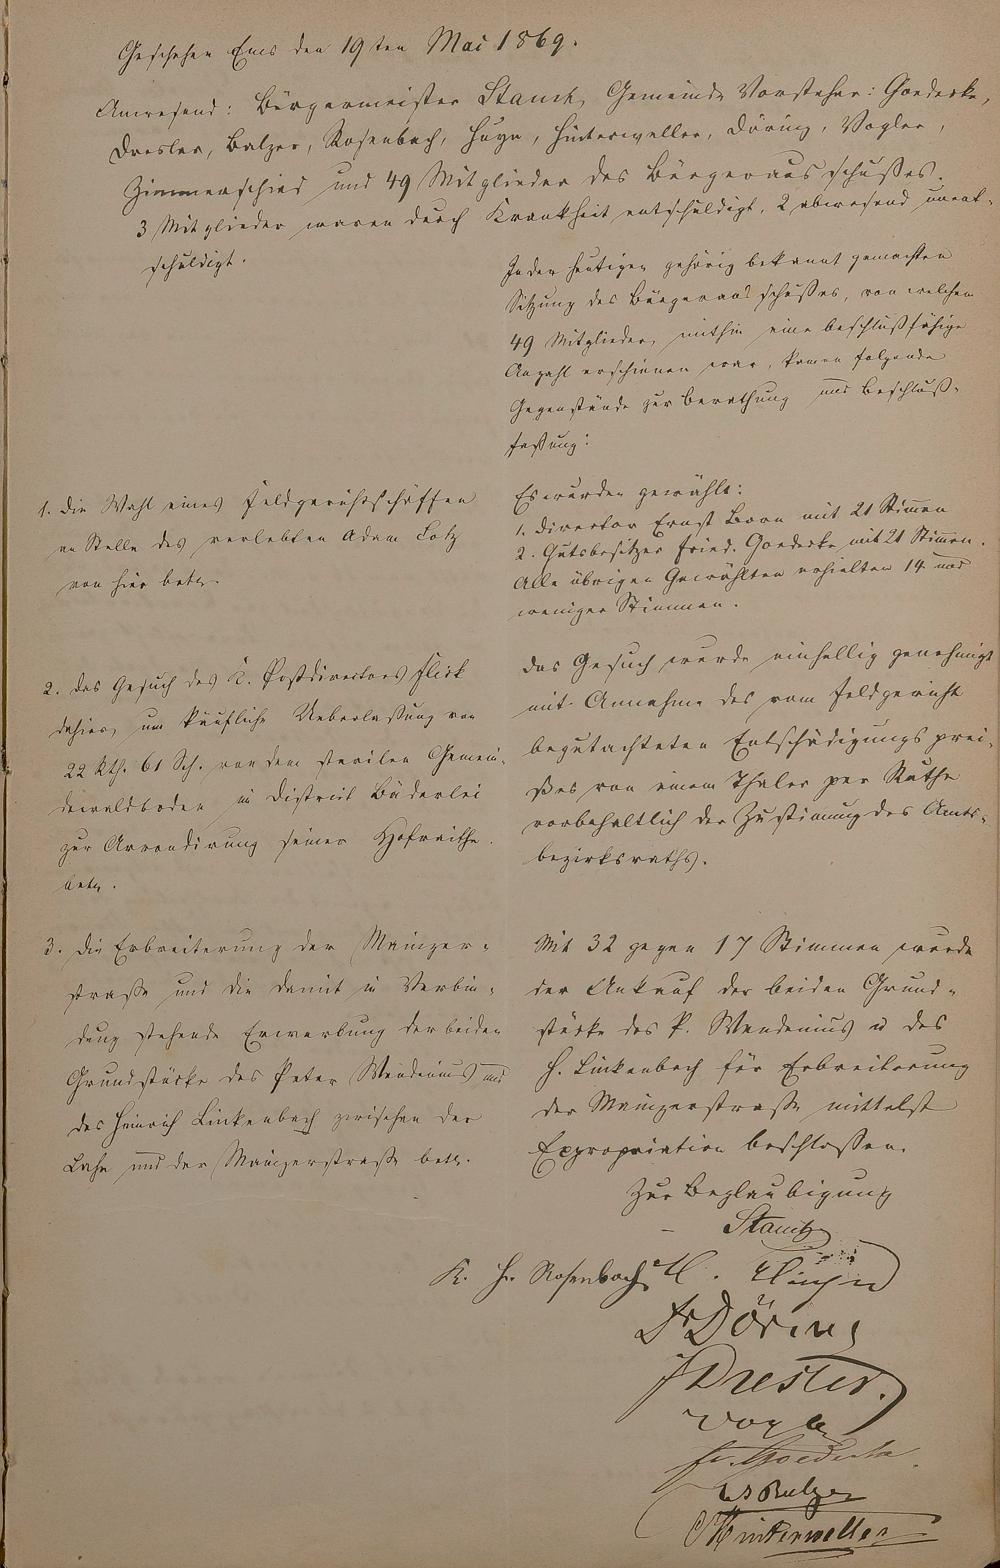 Geschehen Ems den 19ten Mai 1869.
Anwesend: Bürgermeister Stamb, Gemeinde Vorsteher: Goedecke,
Dresler, Balzer, Rosenbach, Huyn, Hinterweller, Döring, Vogler,
Zimmerschied und 49 Mitglieder des Bürgerausschußes.
3 Mitglieder waren durch Krankheit entschuldigt, 2 abwesend unent-
schuldigt.
In der heutigen gehörig bekannt gemachten
Sitzung des Bürgerausschußes, von welchem
49 Mitglieder, mithin eine beschlußfähige
Anzahl erschienen war, kamen folgende
Gegenstände zur Berathung und Beschluß-
faßung:
1. Die Wahl eines Feldgerichtschöffen
an Stelle des verlebten Adam Lotz
von hier betr.
Es wurden gewählt:
1. Director Ernst Born mit 21 Stimen
2. Gutsbesitzer Fried. Goedecke mit 21 Stimen.
Alle übrigen Gewählten erhielten 14 und
weniger Stimmen.
2. Das Gesuch des K. Postdirectors Flick
dahier, um käufliche Ueberlaßung von
22 Rth. 61 Sch. von dem sterilen Gemein-
dewaldboden im District Bäderlei
zur Arrondirung seiner Hofreithe.
betr.
Das Gesuch wurde einhellig genehmigt
mit Annahme des vom Feldgericht
begutachteten Entschädigungsprei-
ßes von einem Thaler per Ruthe
vorbehaltlich der Zustimung des Amts-
bezirksraths.
3. Die Erbreiterung der Mainzer-
straße und die damit in Verbin-
dung stehende Erwerbung der beiden
Grundstücke des Peter Wendenius und
des Heinrich Linkenbach zwischen der
Lahn und der Mainzerstraße betr.
Mit 32 gegen 17 Stimmen wurde
der Ankauf der beiden Grund-
stücke des P. Wendenius u des
H. Linkenbach für Erbreiterung
der Mainzerstraße mittelst
Expropriation beschloßen.
Zur Beglaubigung
Stamb
K. Hr. Rosenbach
Fr Döring
J Dresler.
Vogler
Fr. Goedecke
Balzer
Hinterweller